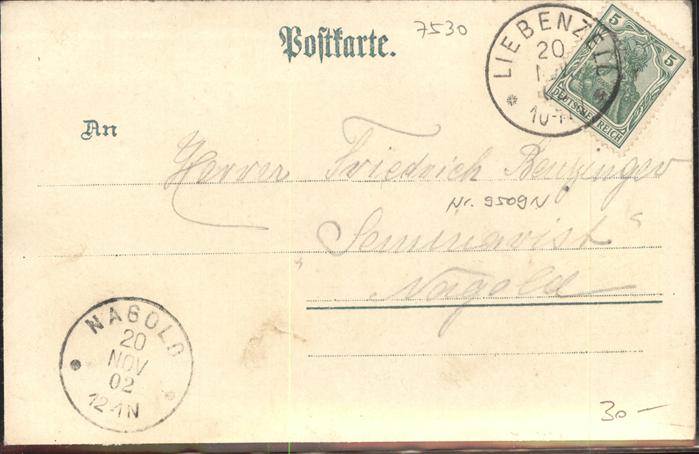 Postkarte.
7530
LIEBENZELL
20
10-11
5
5
DEUTSCHES REICH
An
Herrn Friedrich Benzinger
Nr. 9509N
„Seminarist“
Nagold
NAGOLD
20
NOV
02
12-1N
30 –